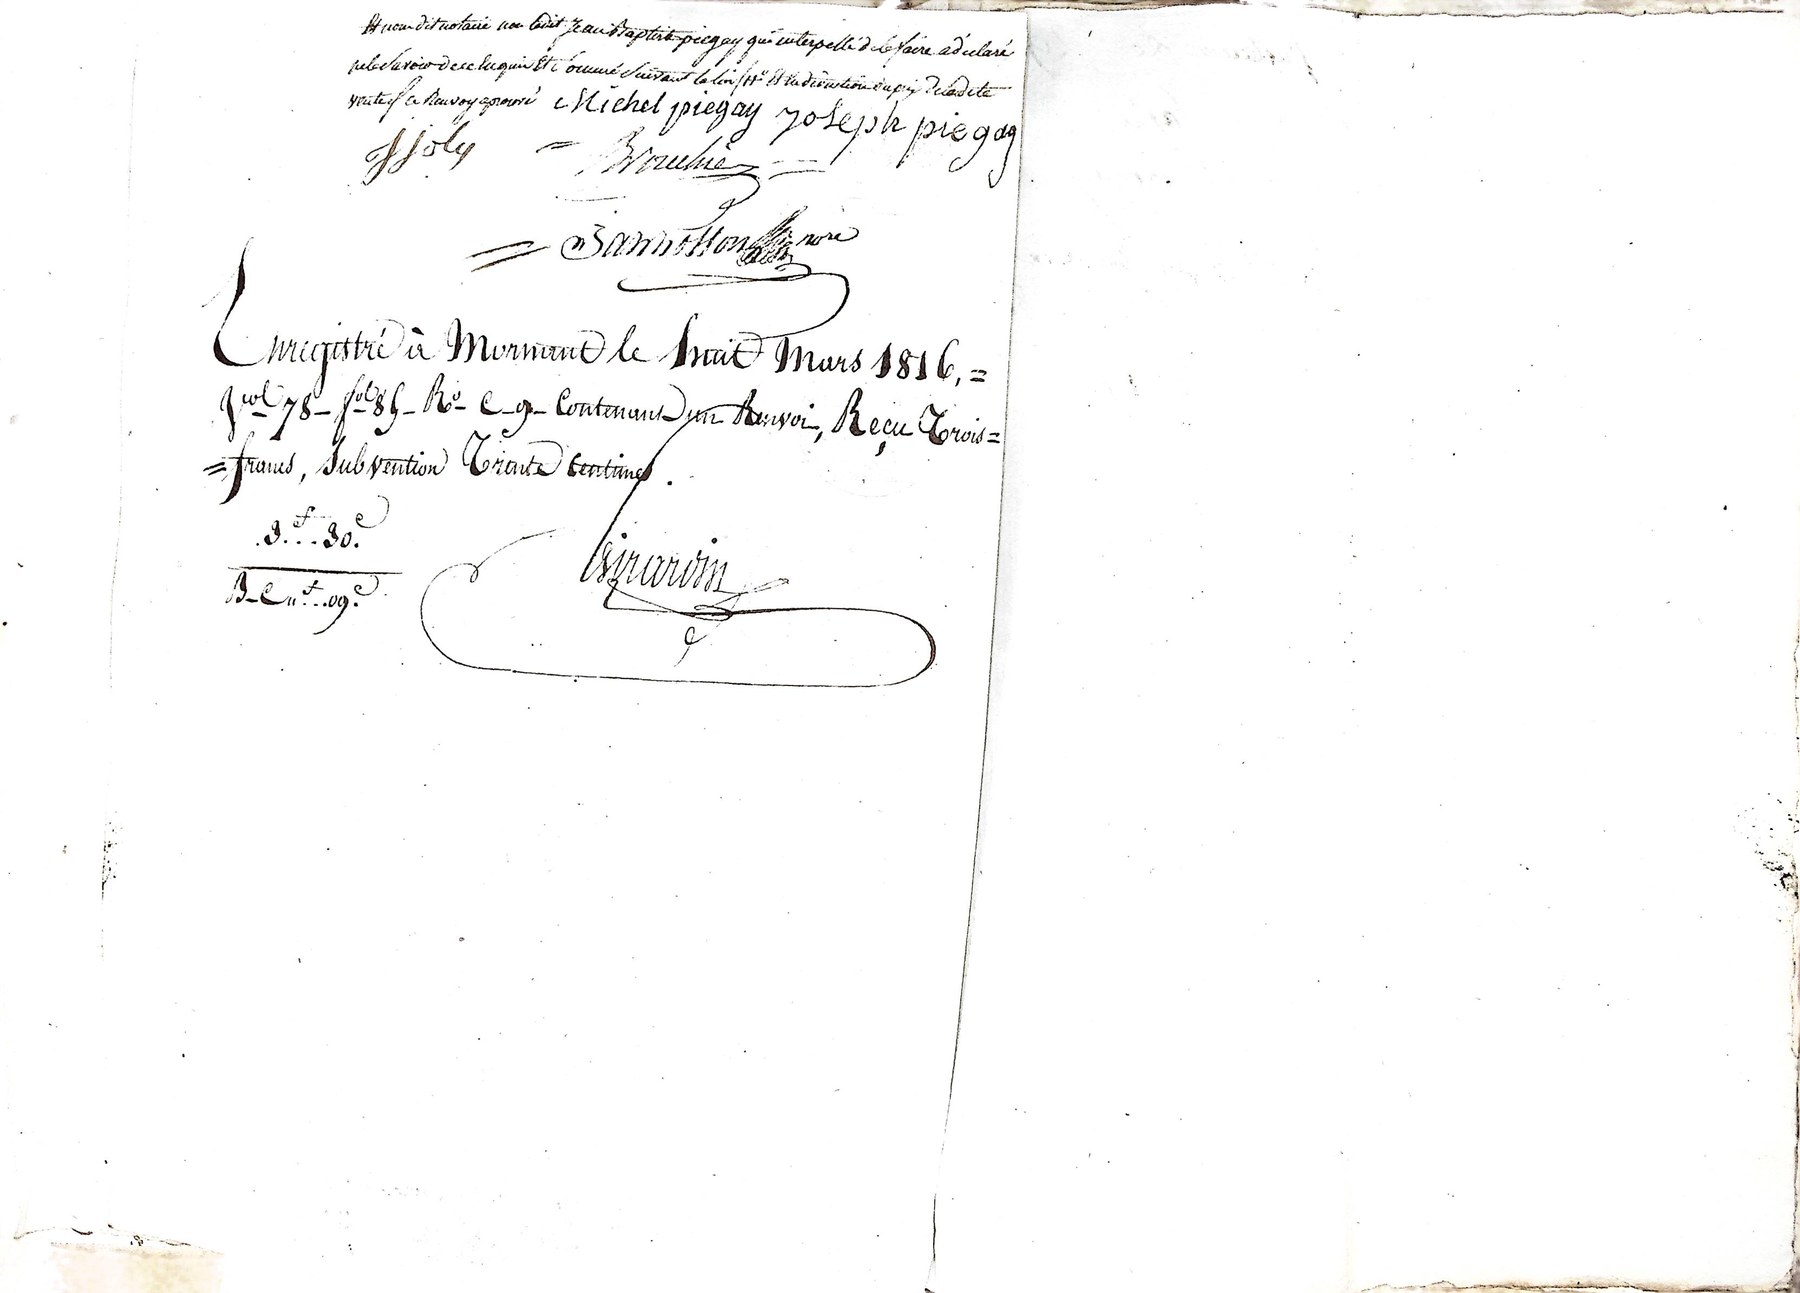 Et non dit notaire non ledit Jean Baptiste piegay qui interpellé de le faire a déclaré
ne le savoir de ce enquis Et sommé suivant la loi
vente ce Renvoy aprouvé Michel piegay Joseph piegay
Joly
Bannosson nore
Enregistré à Mornant le huit Mars 1816, =
vol 78 – fol 85 – Ro – C – 9 – Contenant un Renvoi, Reçu Trois =
= francs, Subvention Trente Centimes .
3.f...30.c
B – C „ f...09.c
Girardin